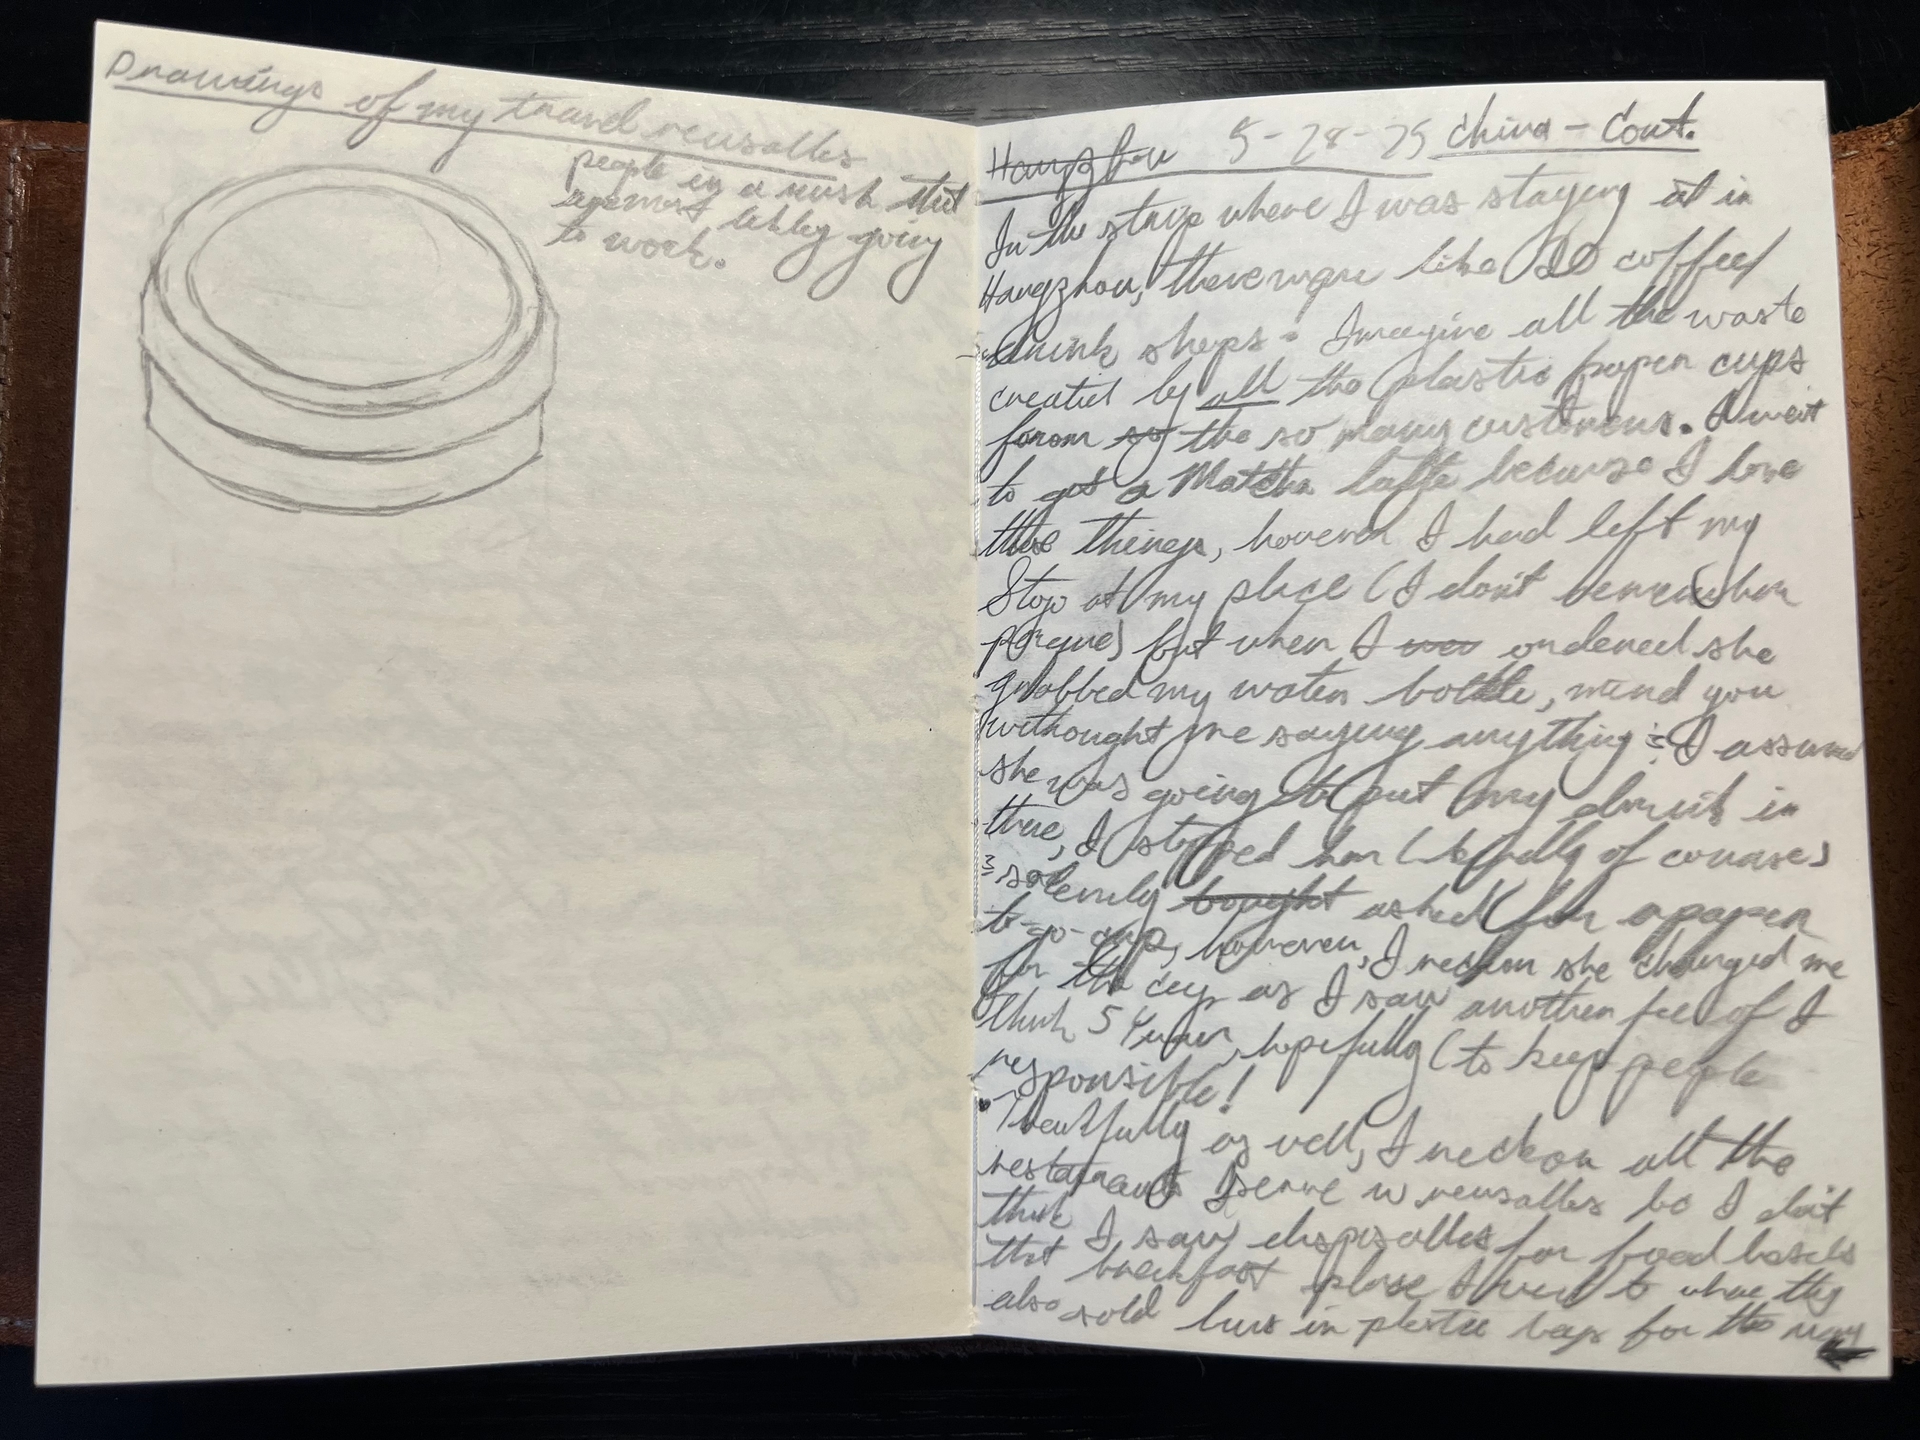 Drawings of my travel reusables
people in a rush that
are most likley going
to work.
Hangzhou 5-28-25 China - Cont.
In the strip where I was staying at in
Hangzhou, there were like 20 coffee/
drink shops. Imagine all the waste
created by all the plastic paper cups
forom so the so many customers. I went
to get a Matcha latte because I love
those things, however I had left my
Stojo at my place (I don't remember
porque) but when I was ordered she
grabbed my water bottle, mind you
withought me saying anything I assumed
she was going to put my drink in
there, I stopped her (kindly of course)
& solemly bought asked for a paper
to-go-cup, however, I reckon she charged me
for the cup as I saw another fee of I
think 5 Yuan, hopefully (to keep people
responsible!
Thankfully as well, I reckon all the
restaraunts serve w reusables bc I don't
think I saw disposables for food besides
that breakfast place I went to where they
also sold buns in plastic bags for the